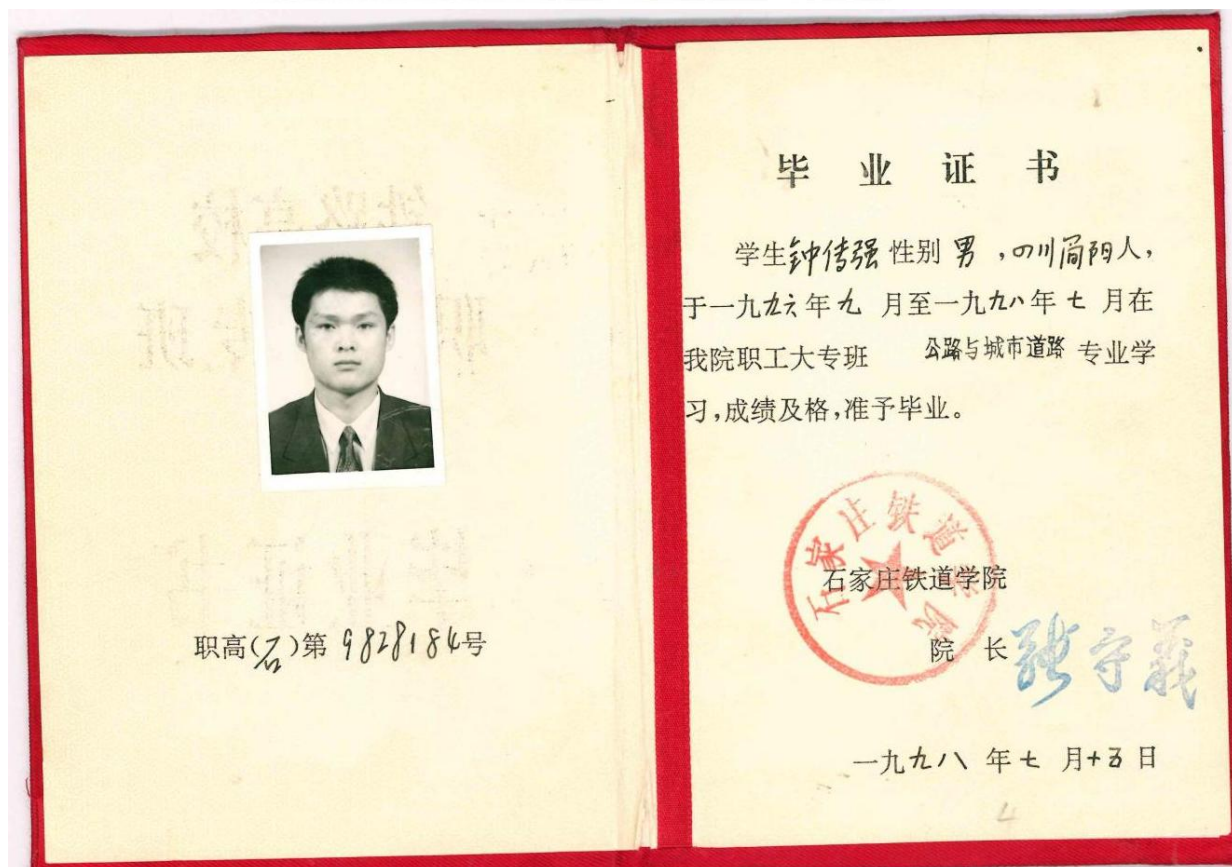 职高(石)第 9828184号
毕业证书
学生钟传强性别男,四川简阳人,
于一九九六年九 月至一九九八年七 月在
我院职工大专班 公路与城市道路 专业学
习,成绩及格,准予毕业。
石家庄铁道学院
石家庄铁道学院
院 长 张守义
一九九八 年七 月十五日
4